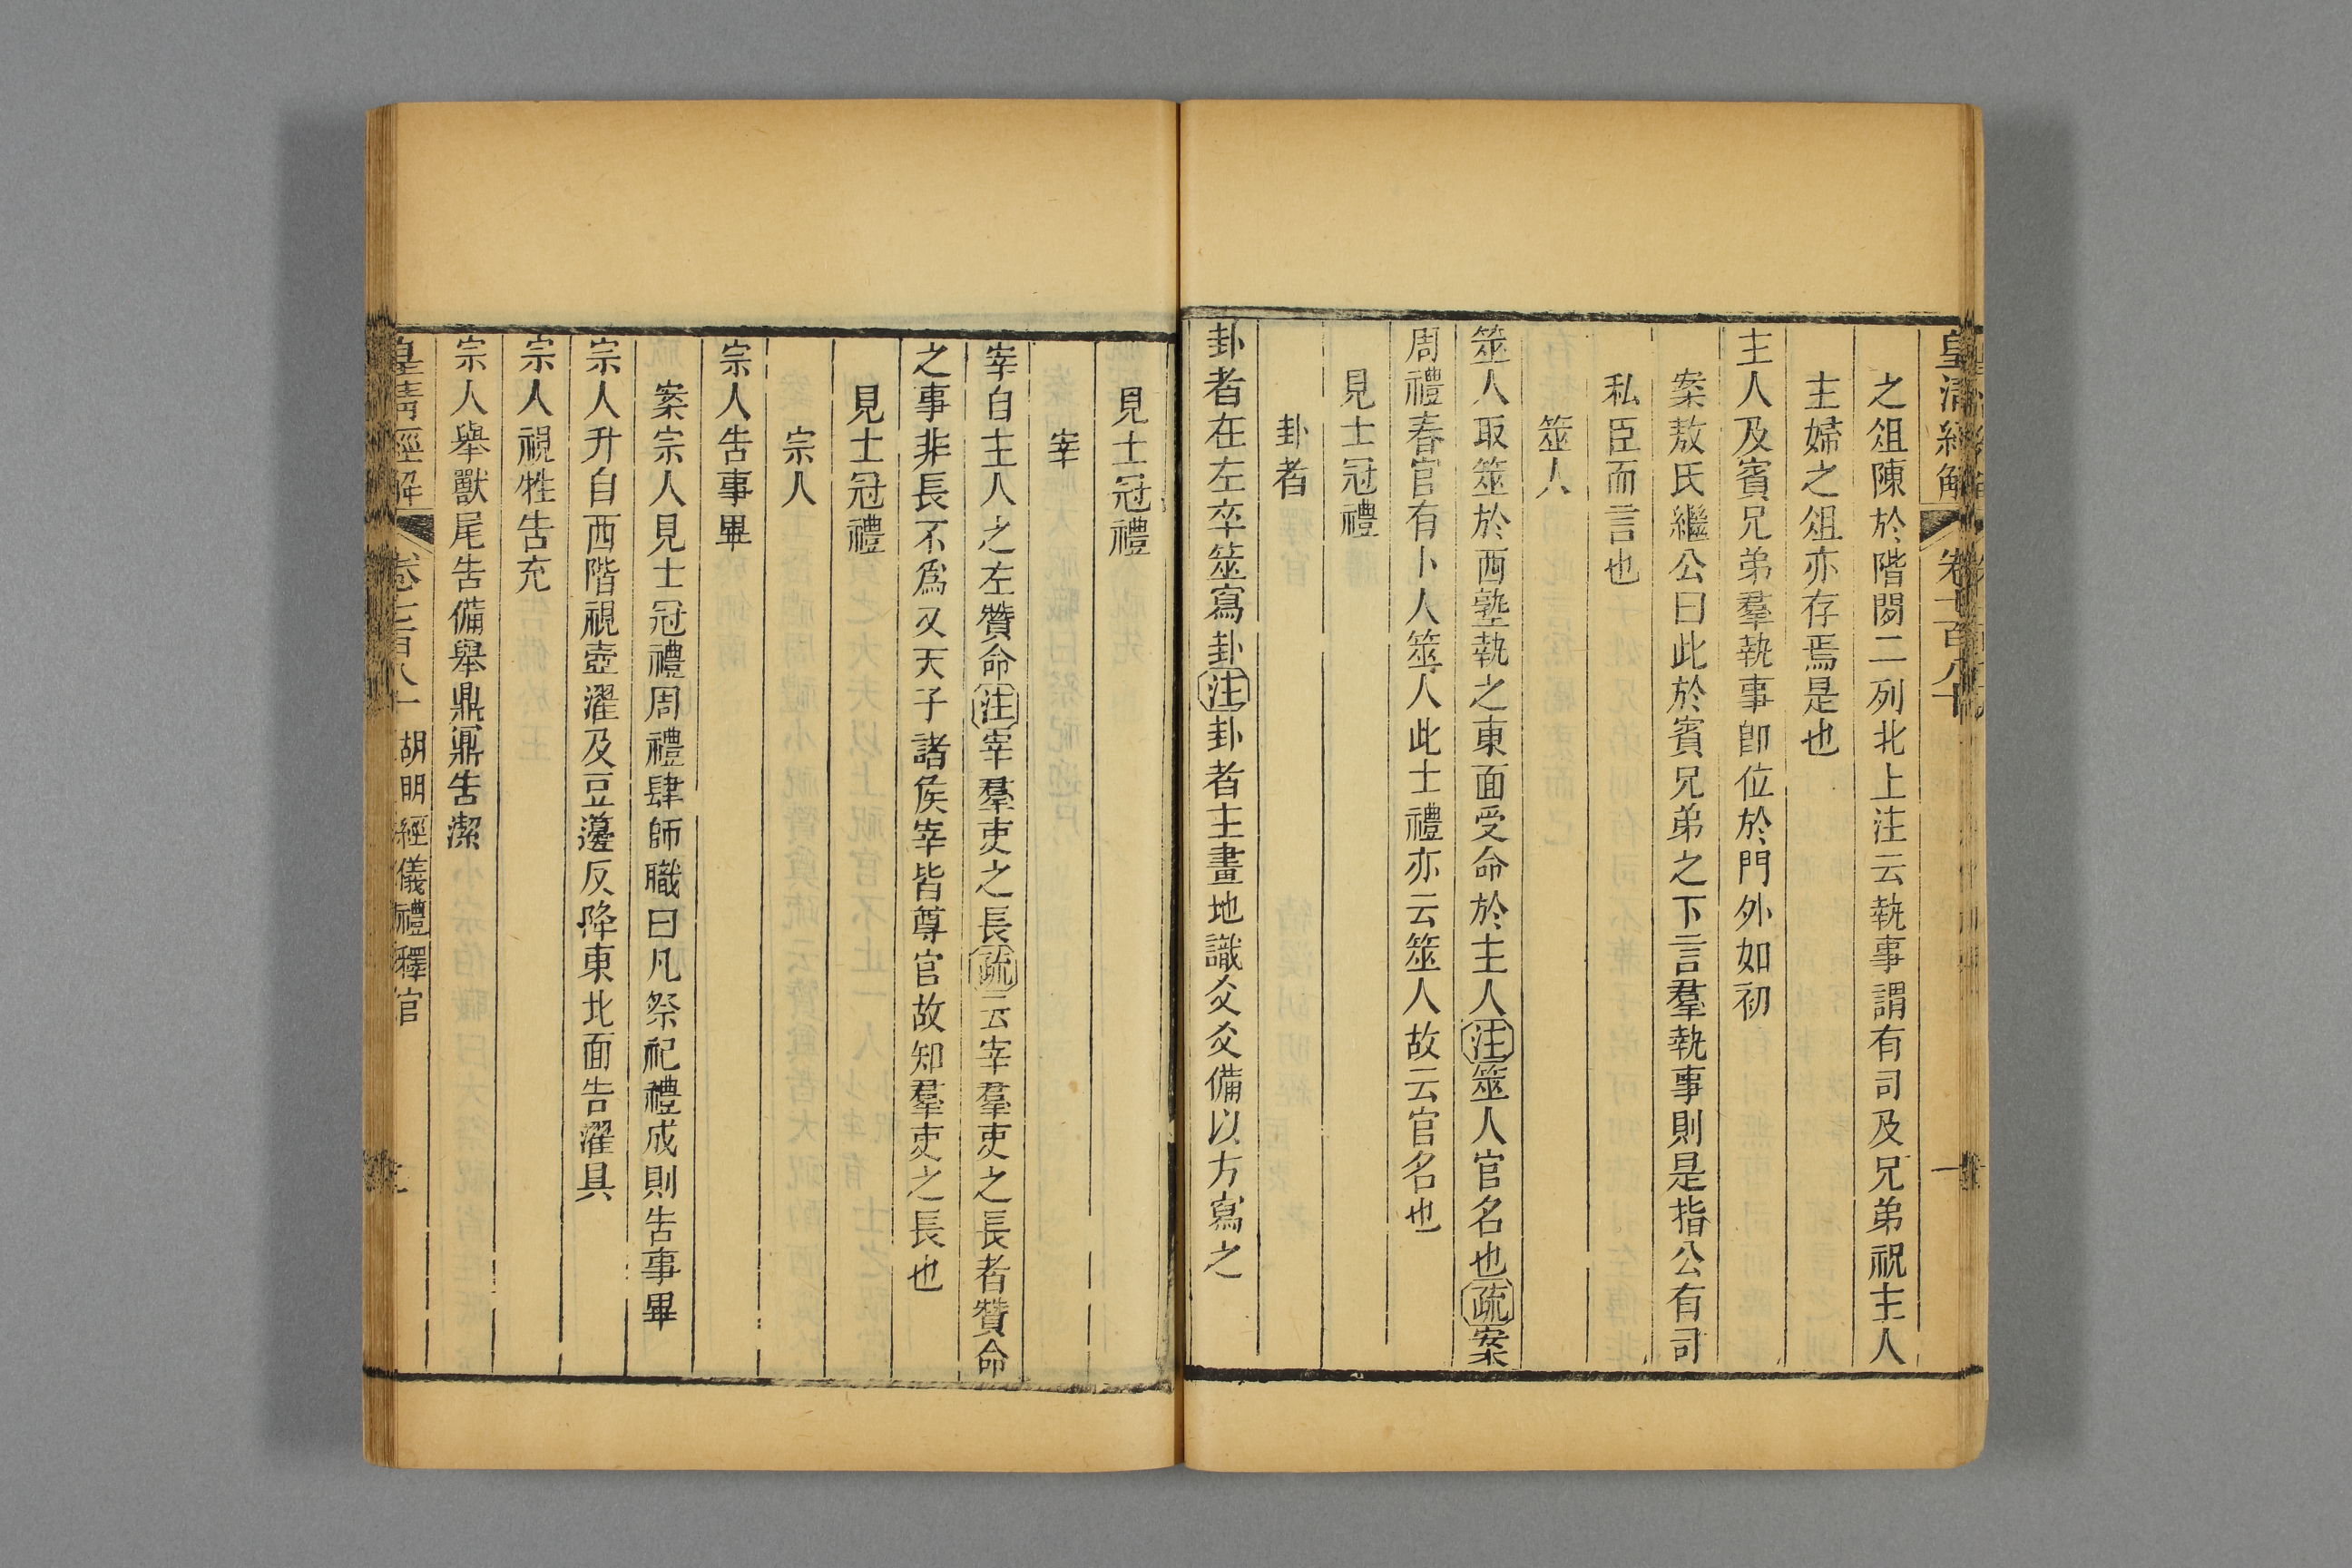 皇清經解
之俎陳於階閒二列北上注云執事謂有司及兄弟祝主人
主婦之俎亦存焉是也
主人及賓兄弟羣執事卽位於門外如初
案敖氏繼公曰此於賓兄弟之下言羣執事則是指公有司
私臣而言也
筮人
筮人取筮於西塾執之東面受命於主人注筮人官名也疏案
周禮春官有卜人筮人此士禮亦云筮人故云官名也
見士冠禮
卦者
卦者在左卒筮寫卦注卦者主畫地識爻爻備以方寫之
見士冠禮
宰
宰自主人之左贊命注宰羣吏之長疏云宰羣吏之長者贊命
之事非長不爲又天子諸侯宰皆尊官故知羣吏之長也
見士冠禮
宗人
宗人告事畢
案宗人見士冠禮周禮肆師職曰凡祭祀禮成則告事畢
宗人升自西階視壺濯及豆籩反降東北面告濯具
宗人視牲告充
宗人舉獸尾告備舉鼎鼏告潔
皇清經解 卷七百八十 胡明經儀禮釋官